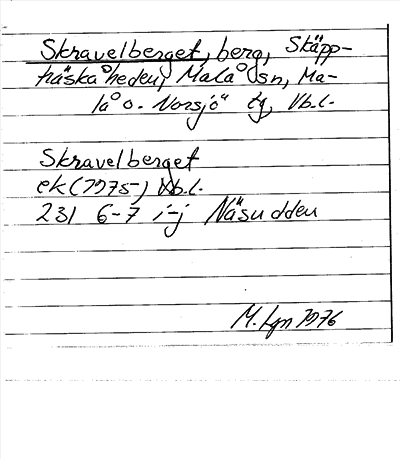 Skravelberget, berg, Skäpp-
träskåheden, Malå sn, Ma-
lå o. Norsjö tg, Vb.l.
Skravelberget
ek (1975-) Vb.l.
231 6-7 i-j Näsudden
M. Lgn 1976